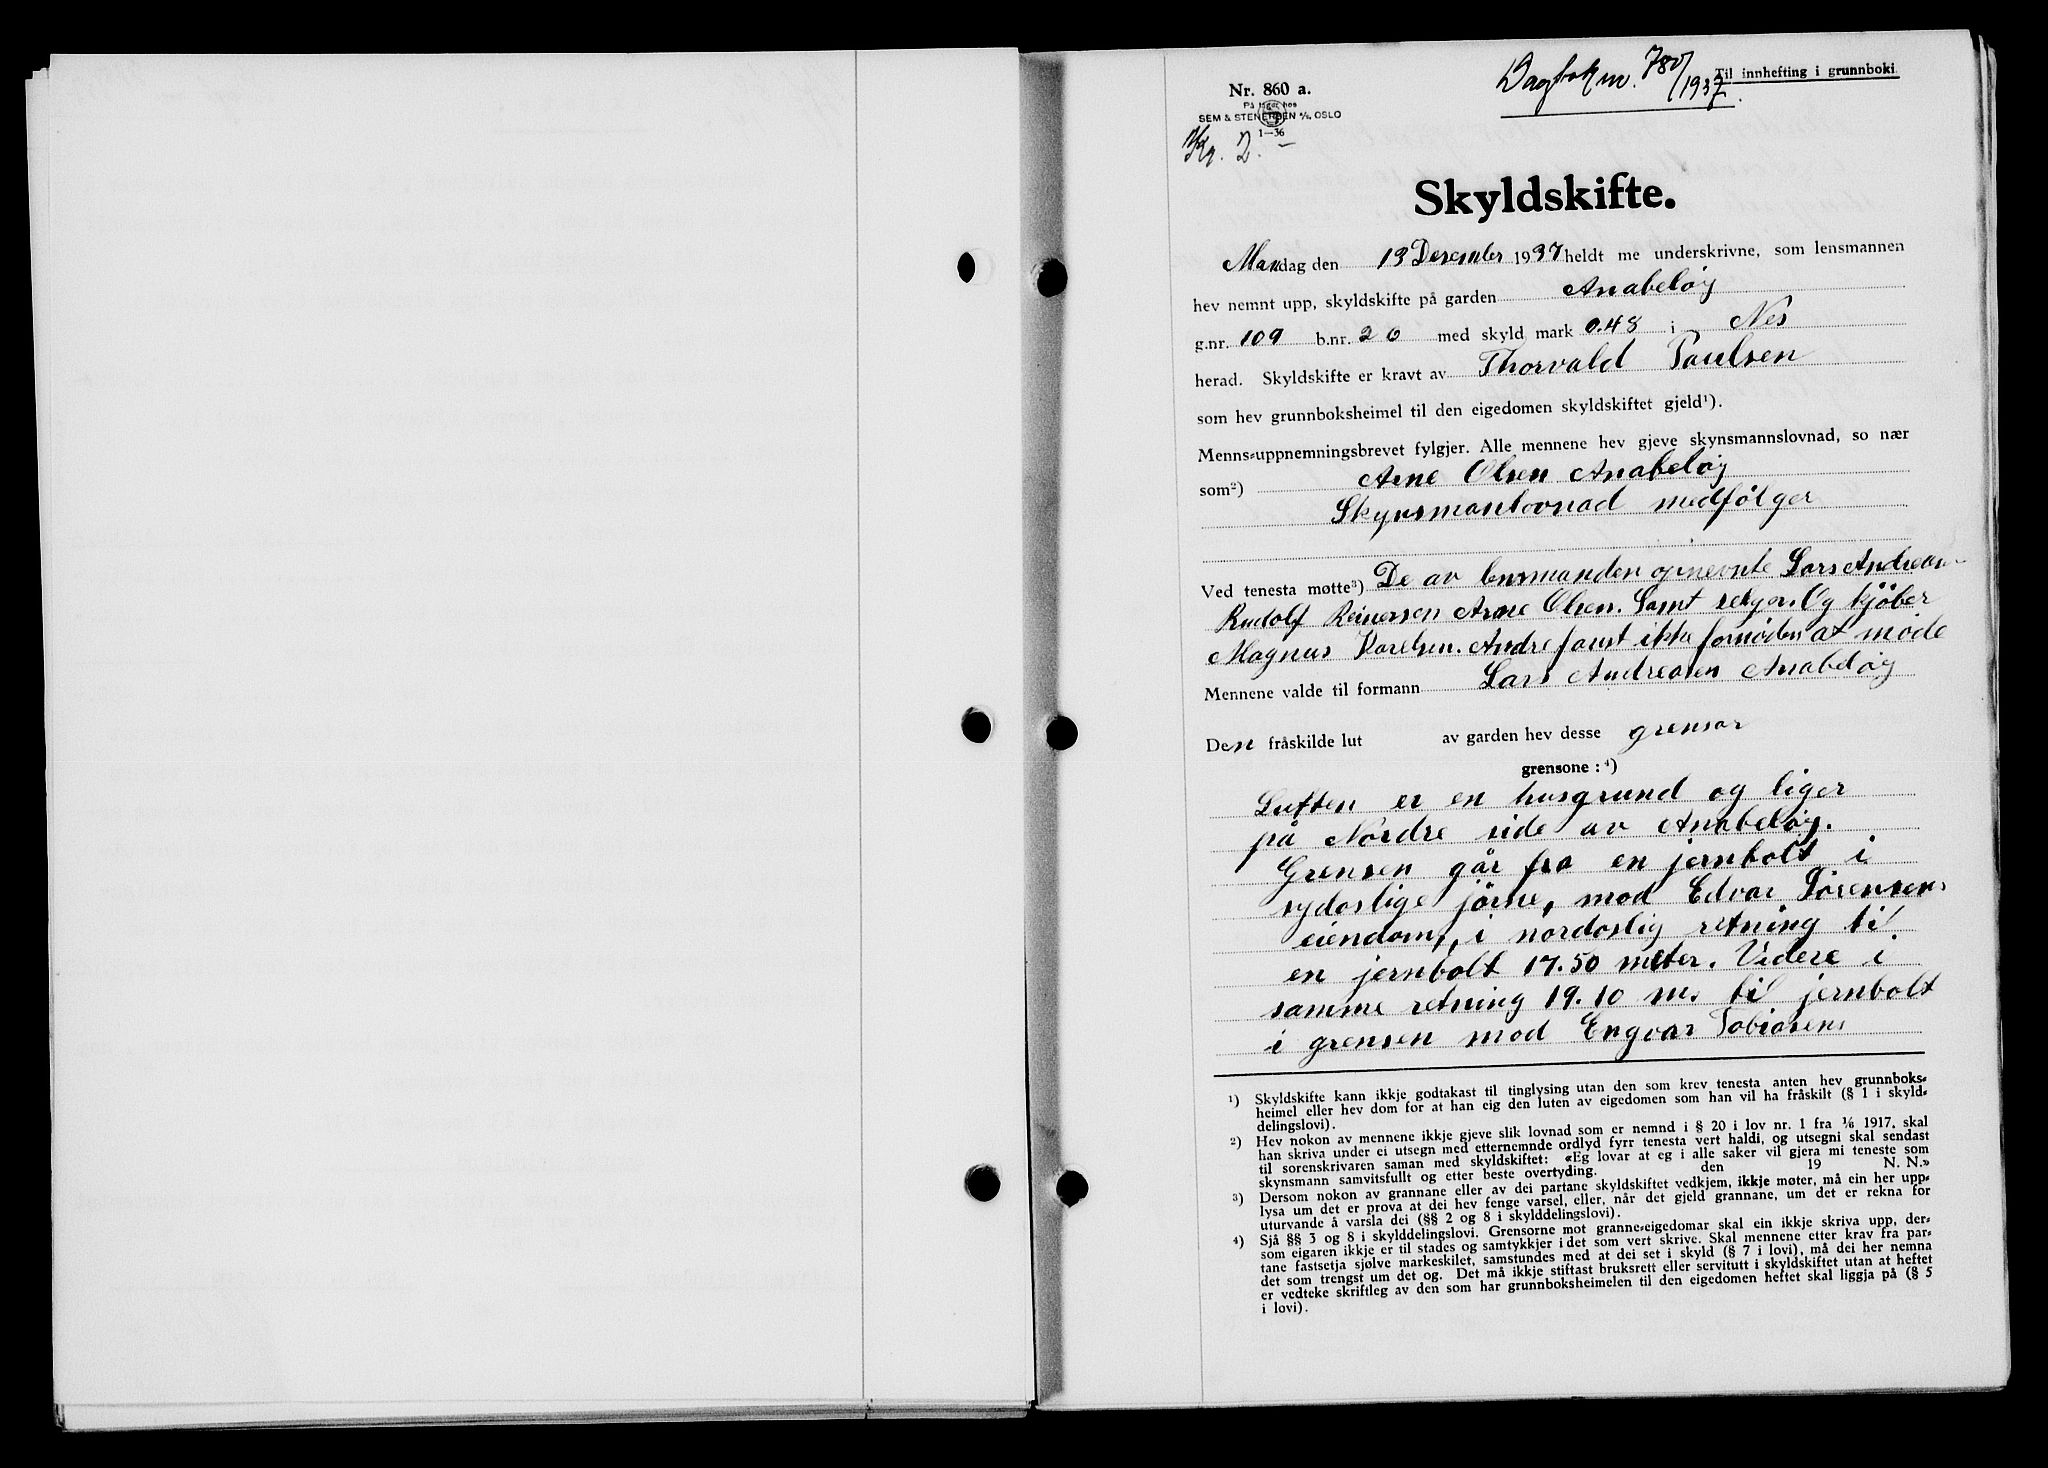 Dagbok nr. 780/1937.
Til innhefting i grunnboki
Nr. 860 a.
På lager hos
SEM & STENERSEN A/S, OSLO
1—36
Kr. 2.—
Skyldskifte.
Mandag den 13 Desember 1937 heldt me underskrivne, som lensmannen
hev nemnt upp, skyldskifte på garden Anabeløy
g.nr. 109 b.nr. 20 med skyld mark 0.48 i Nes
herad. Skyldskifte er kravt av Thorvald Paulsen
som hev grunnboksheimel til den eigedomen skyldskiftet gjeld¹).
Menns-uppnemningsbrevet fylgjer. Alle mennene hev gjeve skynsmannslovnad, so nær
som²) Arne Olsen Anabeløy
Skynsmanlovnad medfølger
Ved tenesta møtte³) De av lensmanden opnevnte Lars Andreasen
Rudolf Reinersen Arne Olsen. Samt selger. Og kjøber
Magnus Karelsen. Andre fanst ikke fornøden at møde
Mennene valde til formann Lars Andreasen Anabeløy
Den fråskilde lut av garden hev desse grensor
grensone:⁴)
Luften er en husgrund og liger
på Nordre side av Anabeløy.
Grensen går fra en jernbolt i
sydøslige jörne, mod Edvar Sörensens
eiendom, i nordøslig retning til
en jernbolt 17.50 meter. Videre i
samme retning 19.10 m. til jernbolt
i grensen mod Engvar Tobiasens
¹) Skyldskifte kann ikkje godtakast til tinglysing utan den som krev tenesta anten hev grunnboks-
heimel eller hev dom for at han eig den luten av eigedomen som han vil ha fråskilt (§ 1 i skyld-
delingslovi).
²) Hev nokon av mennene ikkje gjeve slik lovnad som er nemnd i § 20 i lov nr. 1 fra 1/6 1917, skal
han skriva under ei utsegn med etternemnde ordlyd fyrr tenesta vert haldi, og utsegni skal sendast
til sorenskrivaren saman med skyldskiftet: «Eg lovar at eg i alle saker vil gjera mi teneste som
skynsmann samvitsfullt og etter beste overtyding. den 19 N. N.»
³) Dersom nokon av grannane eller av dei partane skyldskiftet vedkjem, ikkje møter, må ein her upp-
lysa um det er prova at dei hev fenge varsel, eller, når det gjeld grannane, um det er rekna for
uturvande å varsla dei (§§ 2 og 8 i skylddelingslovi).
⁴) Sjå §§ 3 og 8 i skylddelingslovi. Grensorne mot granne-eigedomar skal ein ikkje skriva upp, der-
som eigaren ikkje er til stades og samtykkjer i det som vert skrive. Skal mennene etter krav fra par-
tane fastsetja sjølve markeskilet, samstundes med at dei set i skyld (§ 7 i lovi), må dei her nemna
det som trengst um det og. Det må ikkje stiftast bruksrett eller servitutt i skyldskiftet utan at heftet
er vedteke skriftleg av den som har grunnboksheimelen til den eigedomen heftet skal liggja på (§ 5
i lovi).